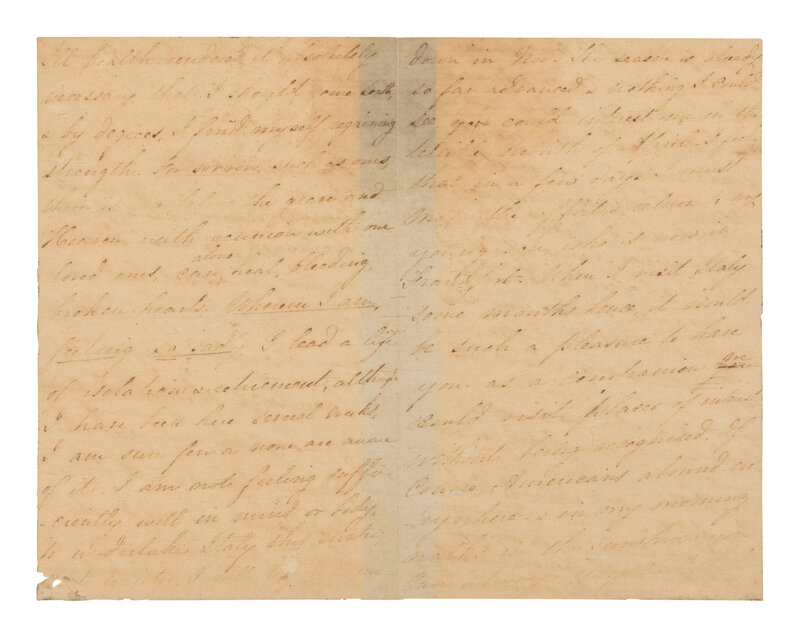 Ill health, rendered it absolutely
necessary, that I should come South,
& by degrees, I find myself regaining
strength. For sorrow, such as ours,
there is the grave and
Heaven, with reunion with our
loved ones can alone heal, bleeding,
broken hearts. Wherever I am,
feeling so sad, I lead a life
of isolation & retirement, although
I have been here several weeks,
I am sure few or none are aware
of it. I am not feeling suffi-
-ciently well in mind or body,
to undertake Italy this winter
next winter, I will
down in Nov. The season is already
so far advanced & nothing I could
see could interest me in this
month of I feel
that in a few days I must
make the effort & return to my
young son who is now in
Frankfort. When I visit Italy
some months hence, it would
be such a pleasure to have
you as a companion we
would visit places of interest
without being recognized. Of
course, Americans abound ev-
-erywhere & in my morning
walks in the sunshine